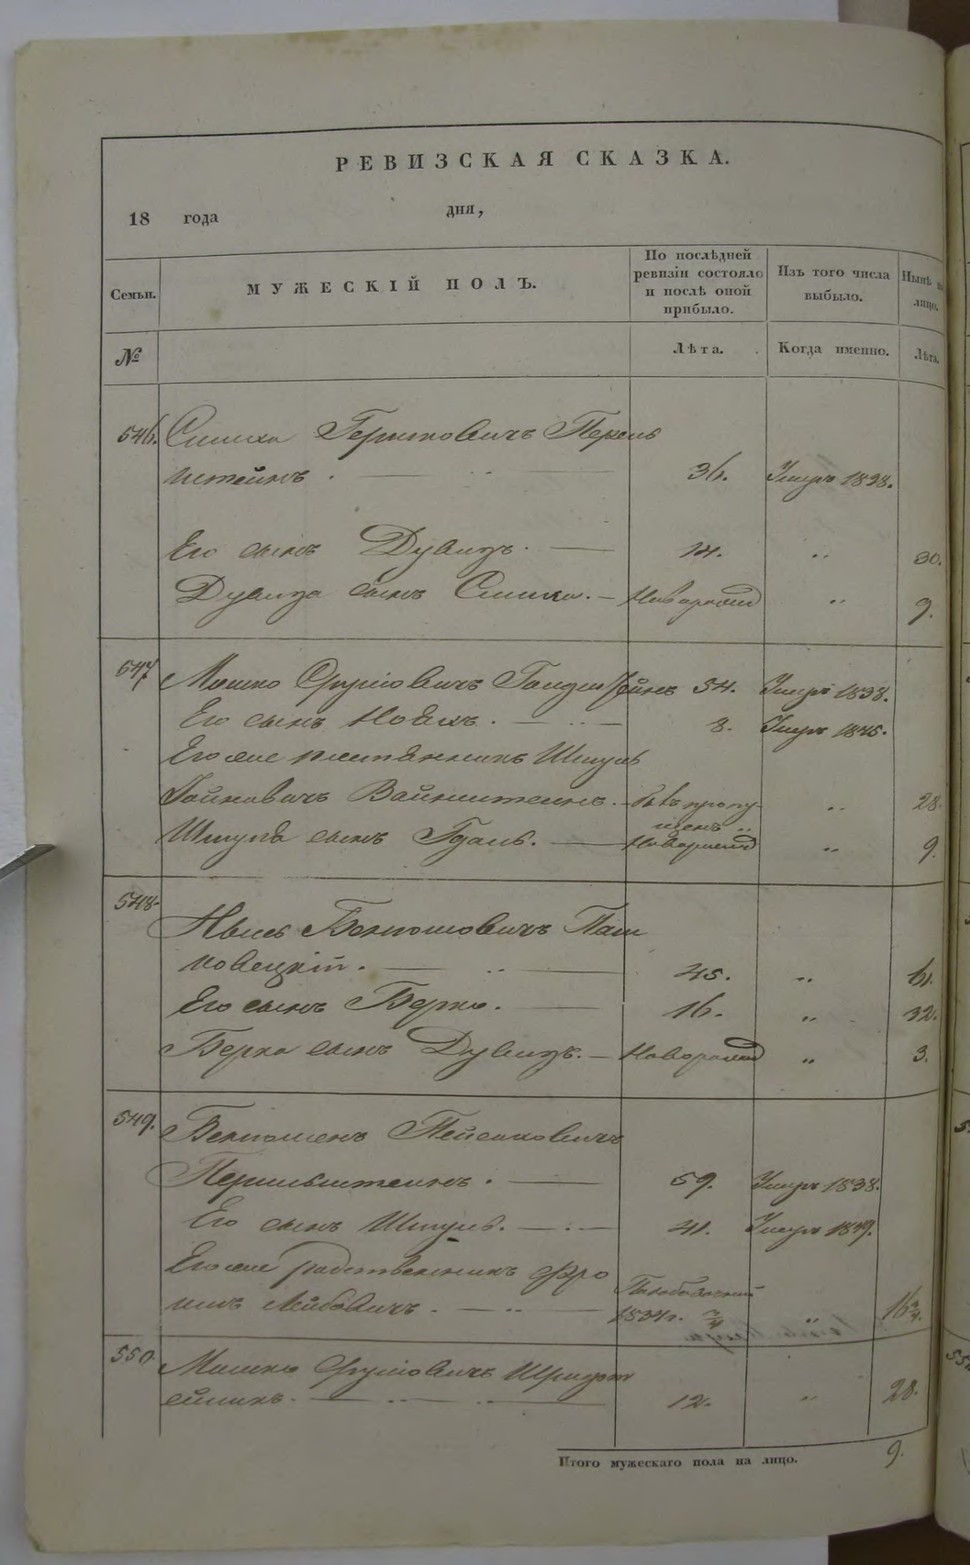 РЕВИЗСКАЯ СКАЗКА.
18 года дня,
Семьи. МУЖЕСКІЙ ПОЛЪ. По послѣдней ревизіи состояло и послѣ оной прибыло. Изъ того числа выбыло. Нынѣ на лицо.
№ Лѣта. Когда именно. Лѣта.
546. Симха Гершковичъ Перель
штейнъ. 36. Умеръ 1838.
Его сынъ Дувидъ. 14. „ 30.
Дувида сынъ Симха. Новорожд „ 9.
547 Мошко Сруліовичъ 54. Умеръ 1838.
Его сынъ 8. Умеръ 1845.
Его же племянникъ Шмуль
Вайнштейнъ. Бывъ пропу- „ 28.
щенъ „
Шмуля сынъ Новорожд „ 9.
548. Беньюмовичъ Паш
ковецкій. 45. „ 61.
Его сынъ Берко. 16. „ 32.
Берка сынъ Дувидъ. Новорожд „ 3.
549. Беньюменъ Пейсаховичъ
Перльштейнъ. 59. Умеръ 1838.
Его сынъ Шмуль. 41. Умеръ 1849.
Его же родственникъ Фро
имъ Лейбовичъ. 1834 г. ¾ „ 16¾.
550. Мошко Сруліовичъ
12. „ 28.
Итого мужескаго пола на лицо. 9.